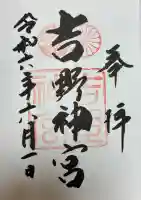 奉拝
吉野神宮
令和六年六月一日